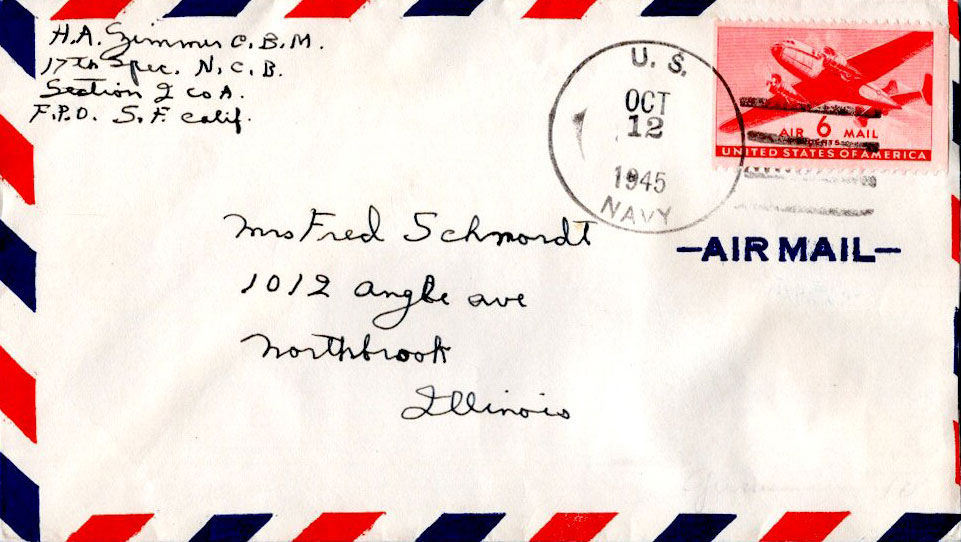 H.A. Zimmer C.B.M.
17th Spec. N.C.B.
Section 2 Co A.
F.P.O. S.F. Calif.
U.S.
OCT
12
1945
NAVY
AIR 6 MAIL
CENTS
UNITED STATES OF AMERICA
—AIR MAIL—
Mrs Fred Schmordt
1012 Angle ave
Northbrook
Illinois